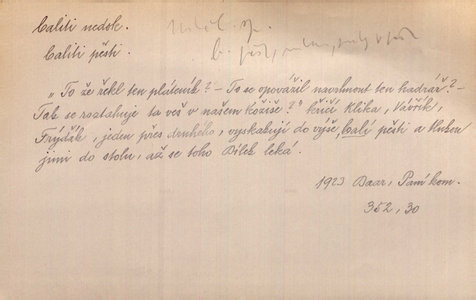 baliti nedok.
baliti pěsti.
„To že řekl ten pláteník? – To se opovážil navrhnout ten hadrář? –
Tak se roztahuje ta veš v našem kožiše?" křičí Klika, Vávřík,
Frýdák, jeden přes druhého, vyskakují do výše, balí pěsti a tlukou
jimi do stolu, až se toho Bílek leká.
1923 Baar, Paní kom.
352, 30